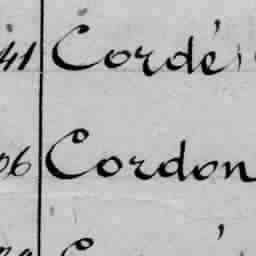 41 Cordé
06 Cordon